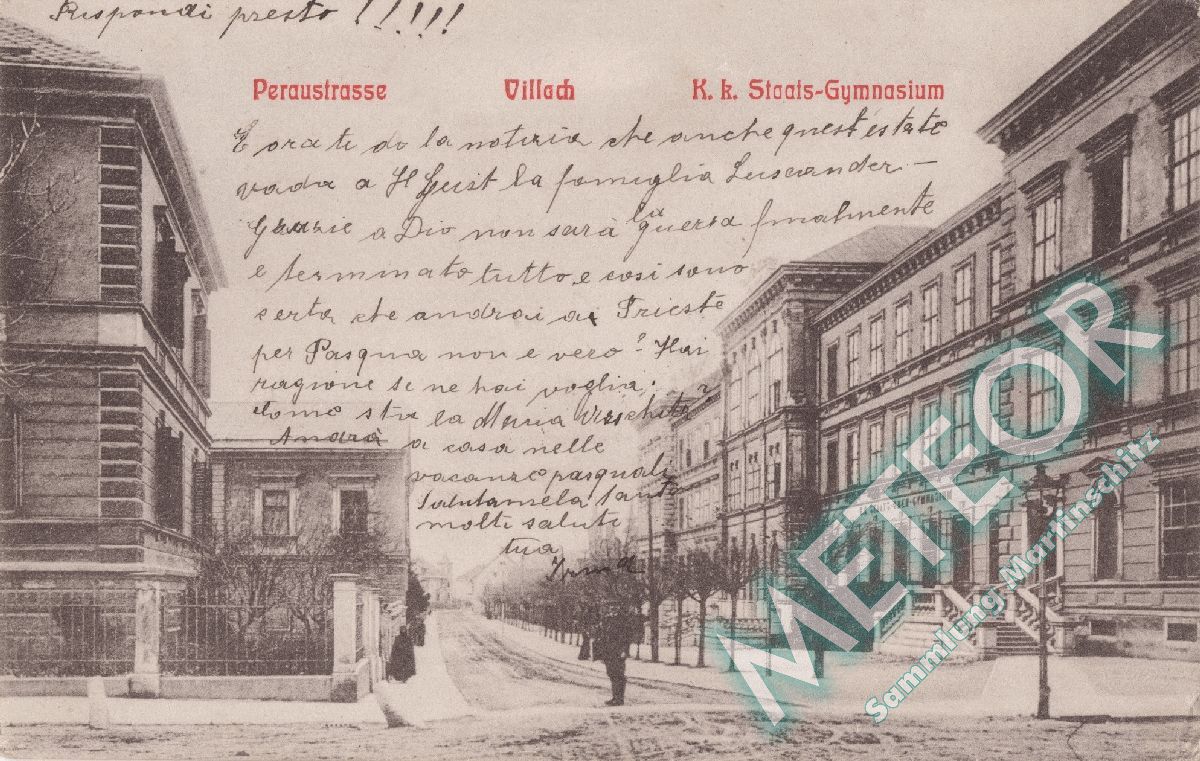 Rispondi presto !!!!!
Peraustrasse Villach K. k. Staats-Gymnasium
E ora ti do la notizia che anche quest'estate
vada a St Geist la famiglia Luswander -
Grazie a Dio non sarà la guerra finalmente
e terminato tutto, e cosi sono
serta che andrai a Trieste
per Pasqua non e vero? Hai
ragione se ne hai voglia,
Como sta la Maria
Andrà a casa nelle
vacanze pasquali
Salutamela tanto
molti saluti
tua
Irma
METEOR
Sammlung Martinschitz